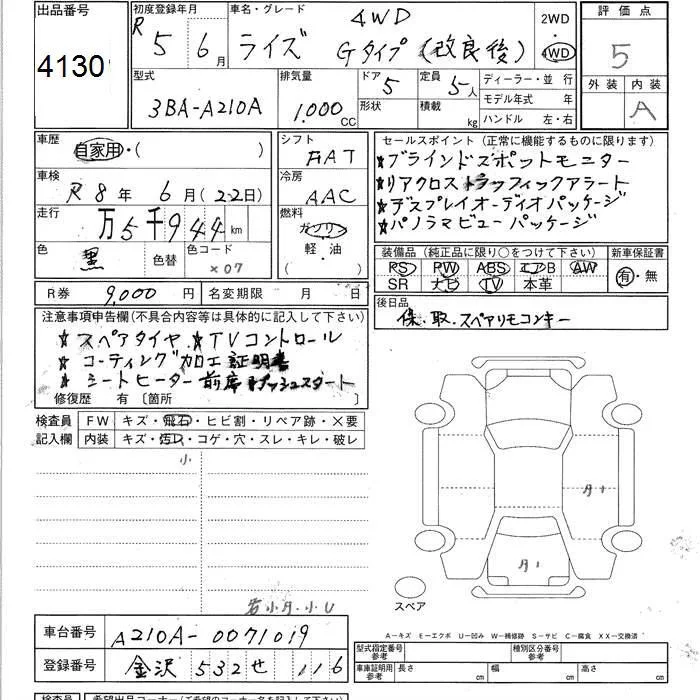 出品番号 4130
初度登録年月 R 5年 6月
車名・グレード 4WD
ライズ Gタイプ (改良後)
2WD
4WD
評価点
5
外装 内装
A
型式 3BA-A210A
排気量 1.000 CC
ドア 5
形状
定員 5人
積載 kg
ディーラー・並行
モデル年式 年
ハンドル 左・右
車歴 自家用・( )
車検 R 8年 6月(22日)
走行 万5千944km
色 黒 色替
色コード X07
R券 9,000円 名変期限 月 日
シフト FAT
冷房 AAC
燃料 ガソリン
軽・油
( )
セールスポイント (正常に機能するものに限ります)
★ブラインドスポットモニター
★リアクロストラフィックアラート
★デスプレイオーディオパッケージ
★パノラマビューパッケージ
装備品 (純正品に限り○をつけて下さい)
PS PW ABS エアB AW
SR ナビ TV 本革
新車保証書
有・無
後日品
保.取.スペアリモコンキー
注意事項申告欄(不具合内容等は具体的に記入して下さい)
★スペアタイヤ ★TVコントロール
★コーティング加工 証明書
★シートヒーター前席 ★プッシュスタート
修復歴 有 〔箇所 〕
検査員記入欄
FW キズ・飛石・ヒビ割・リペア跡・×要
内装 キズ・汚レ・コゲ・穴・スレ・キレ・破レ
小
若小A.小U
スペア
A-キズ E-エクボ U-凹み W-補修跡 S-サビ C-腐食 XX-交換済
車台番号 A210A-0071019
登録番号 金沢 532 せ 116
型式指定番号 参考
種別区分番号 参考
車庫証明用 参考 長さ cm 幅 cm 高さ cm
検査員 希望出品コーナー(ご希望のコーナー名を記入して下さい)